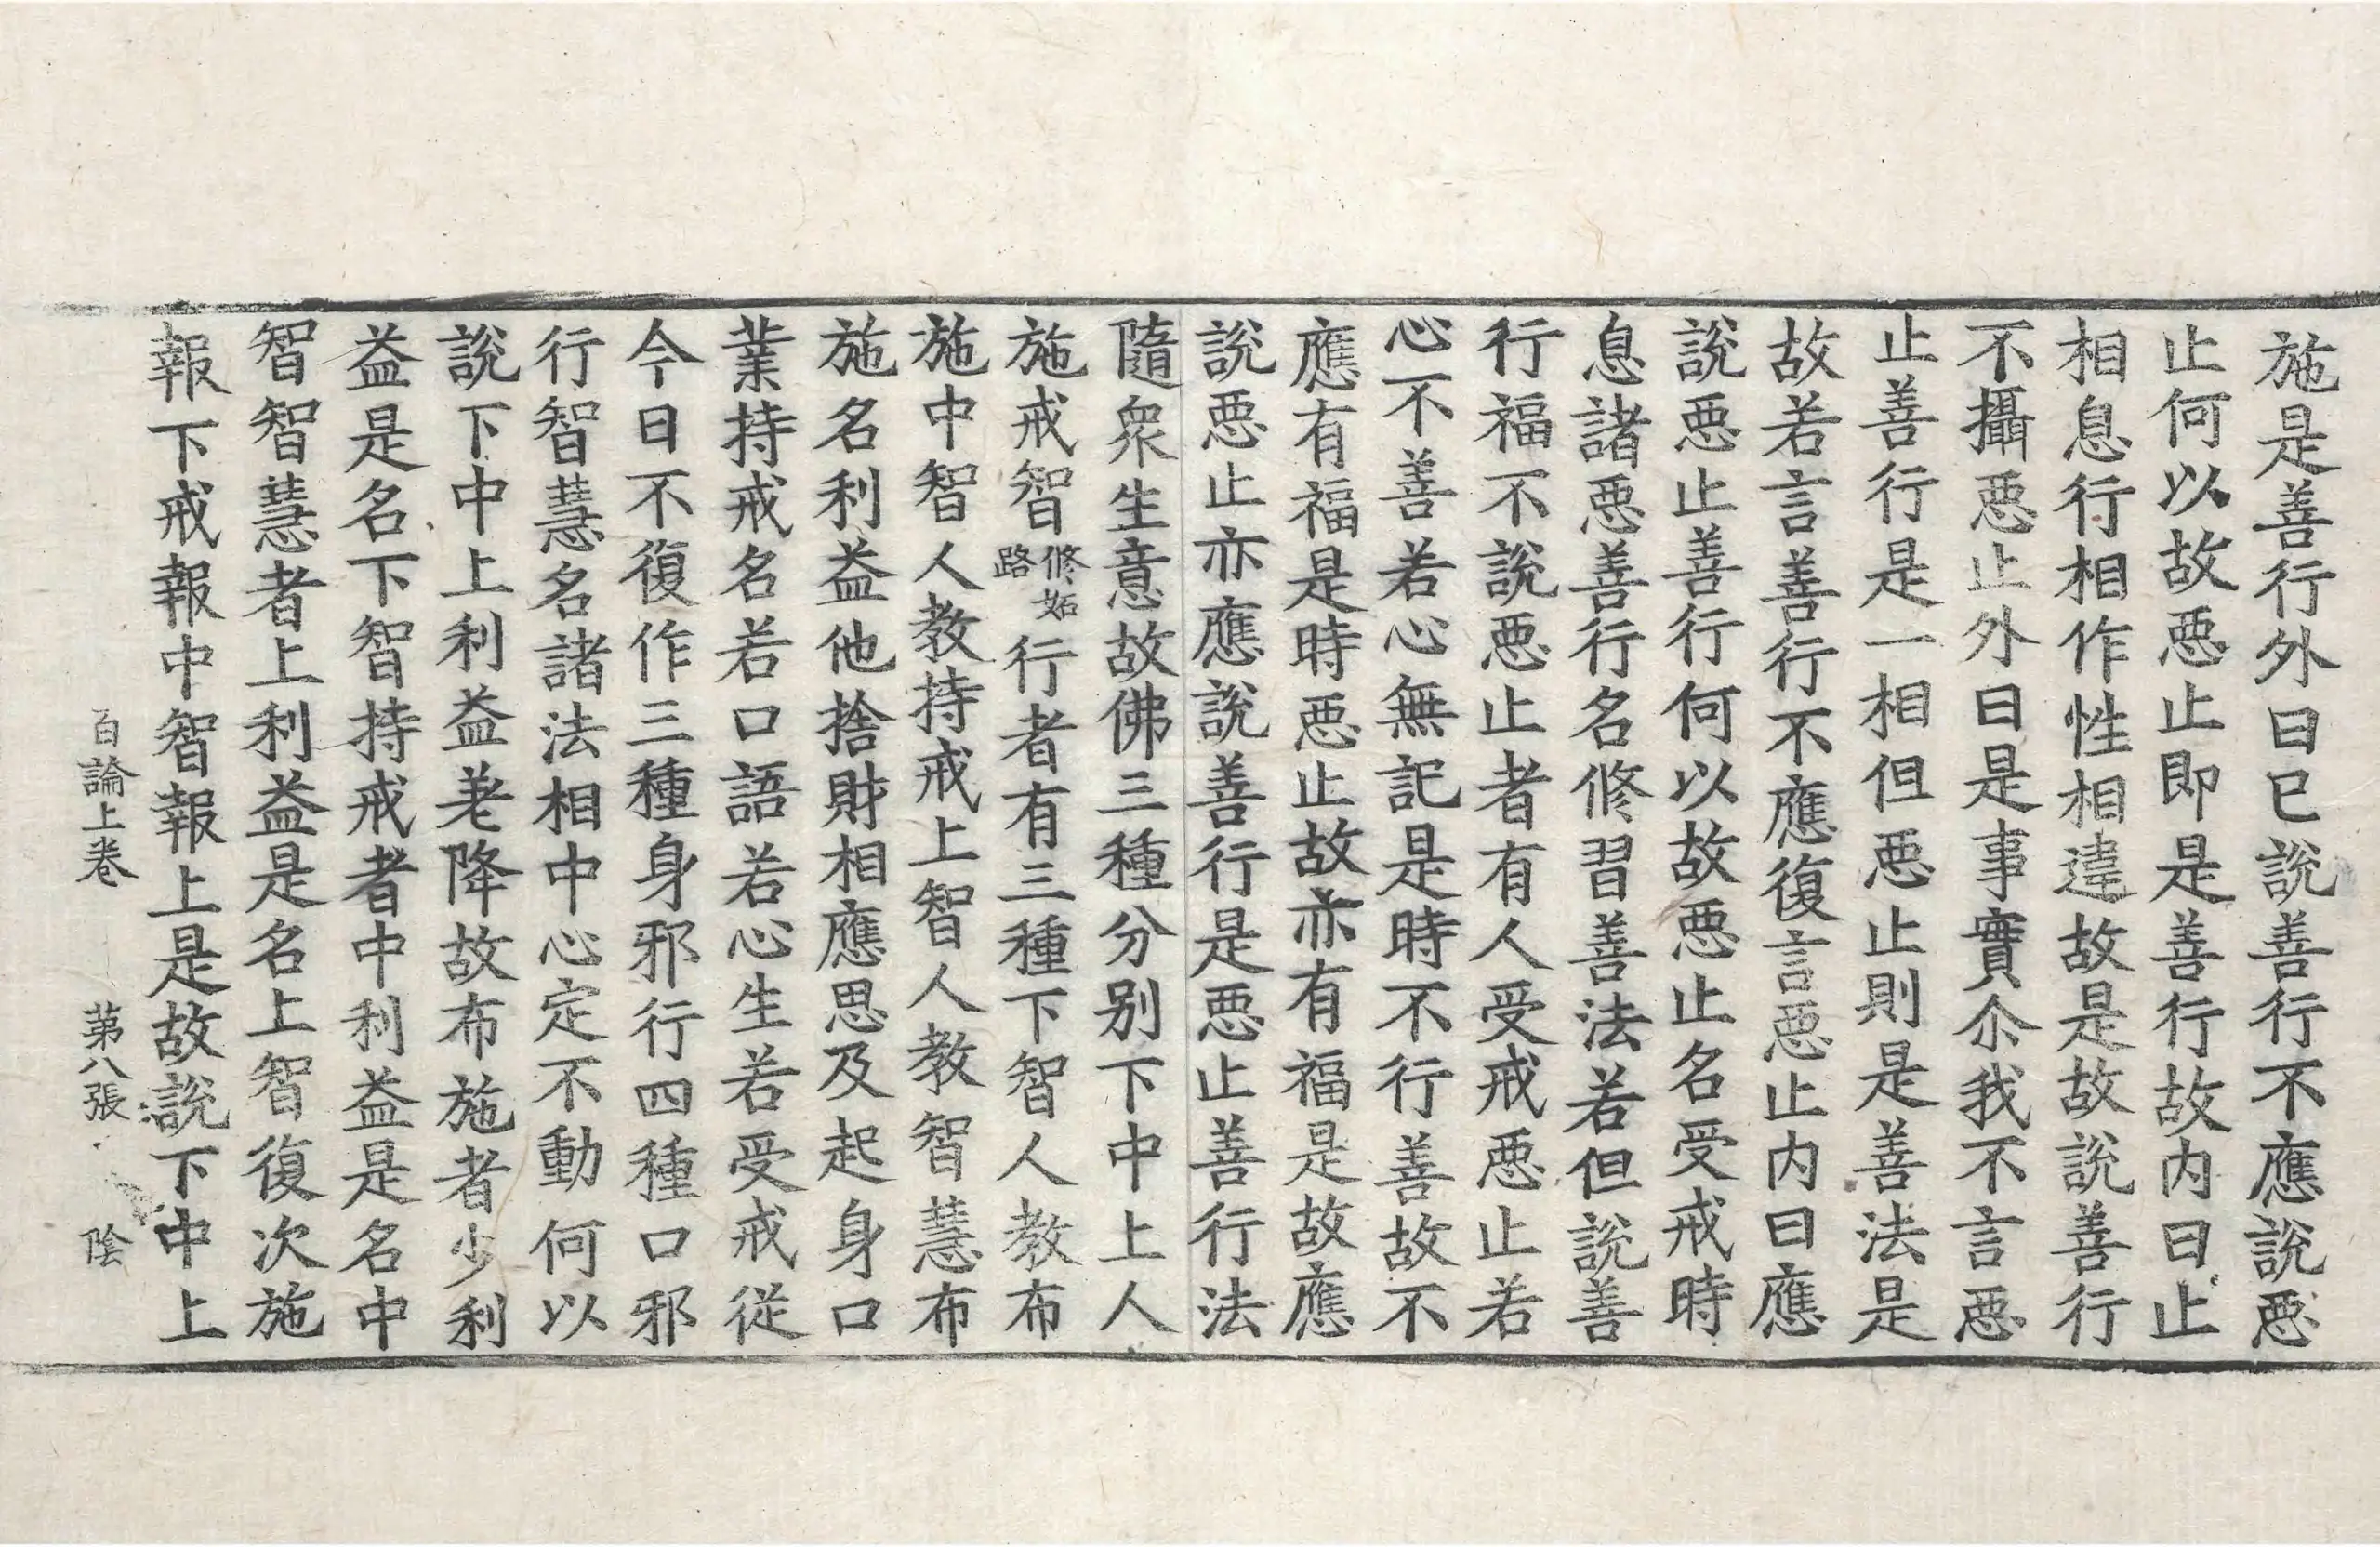 施是善行外曰已說善行不應說惡
止何以故惡止即是善行故内曰止
相息行相作性相違故是故說善行
不攝惡止外曰是事實尒我不言惡
止善行是一相但惡止則是善法是
故若言善行不應復言惡止内曰應
說惡止善行何以故惡止名受戒時
息諸惡善行名修習善法若但說善
行福不說惡止者有人受戒惡止若
心不善若心無記是時不行善故不
應有福是時惡止故亦有福是故應
說惡止亦應說善行是惡止善行法
隨衆生意故佛三種分别下中上人
施戒智修妬路行者有三種下智人教布
施中智人教持戒上智人教智慧布
施名利益他捨財相應思及起身口
業持戒名若口語若心生若受戒從
今日不復作三種身邪行四種口邪
行智慧名諸法相中心定不動何以
說下中上利益差降故布施者少利
益是名下智持戒者中利益是名中
智智慧者上利益是名上智復次施
報下戒報中智報上是故說下中上
百論上卷 第八張 陰